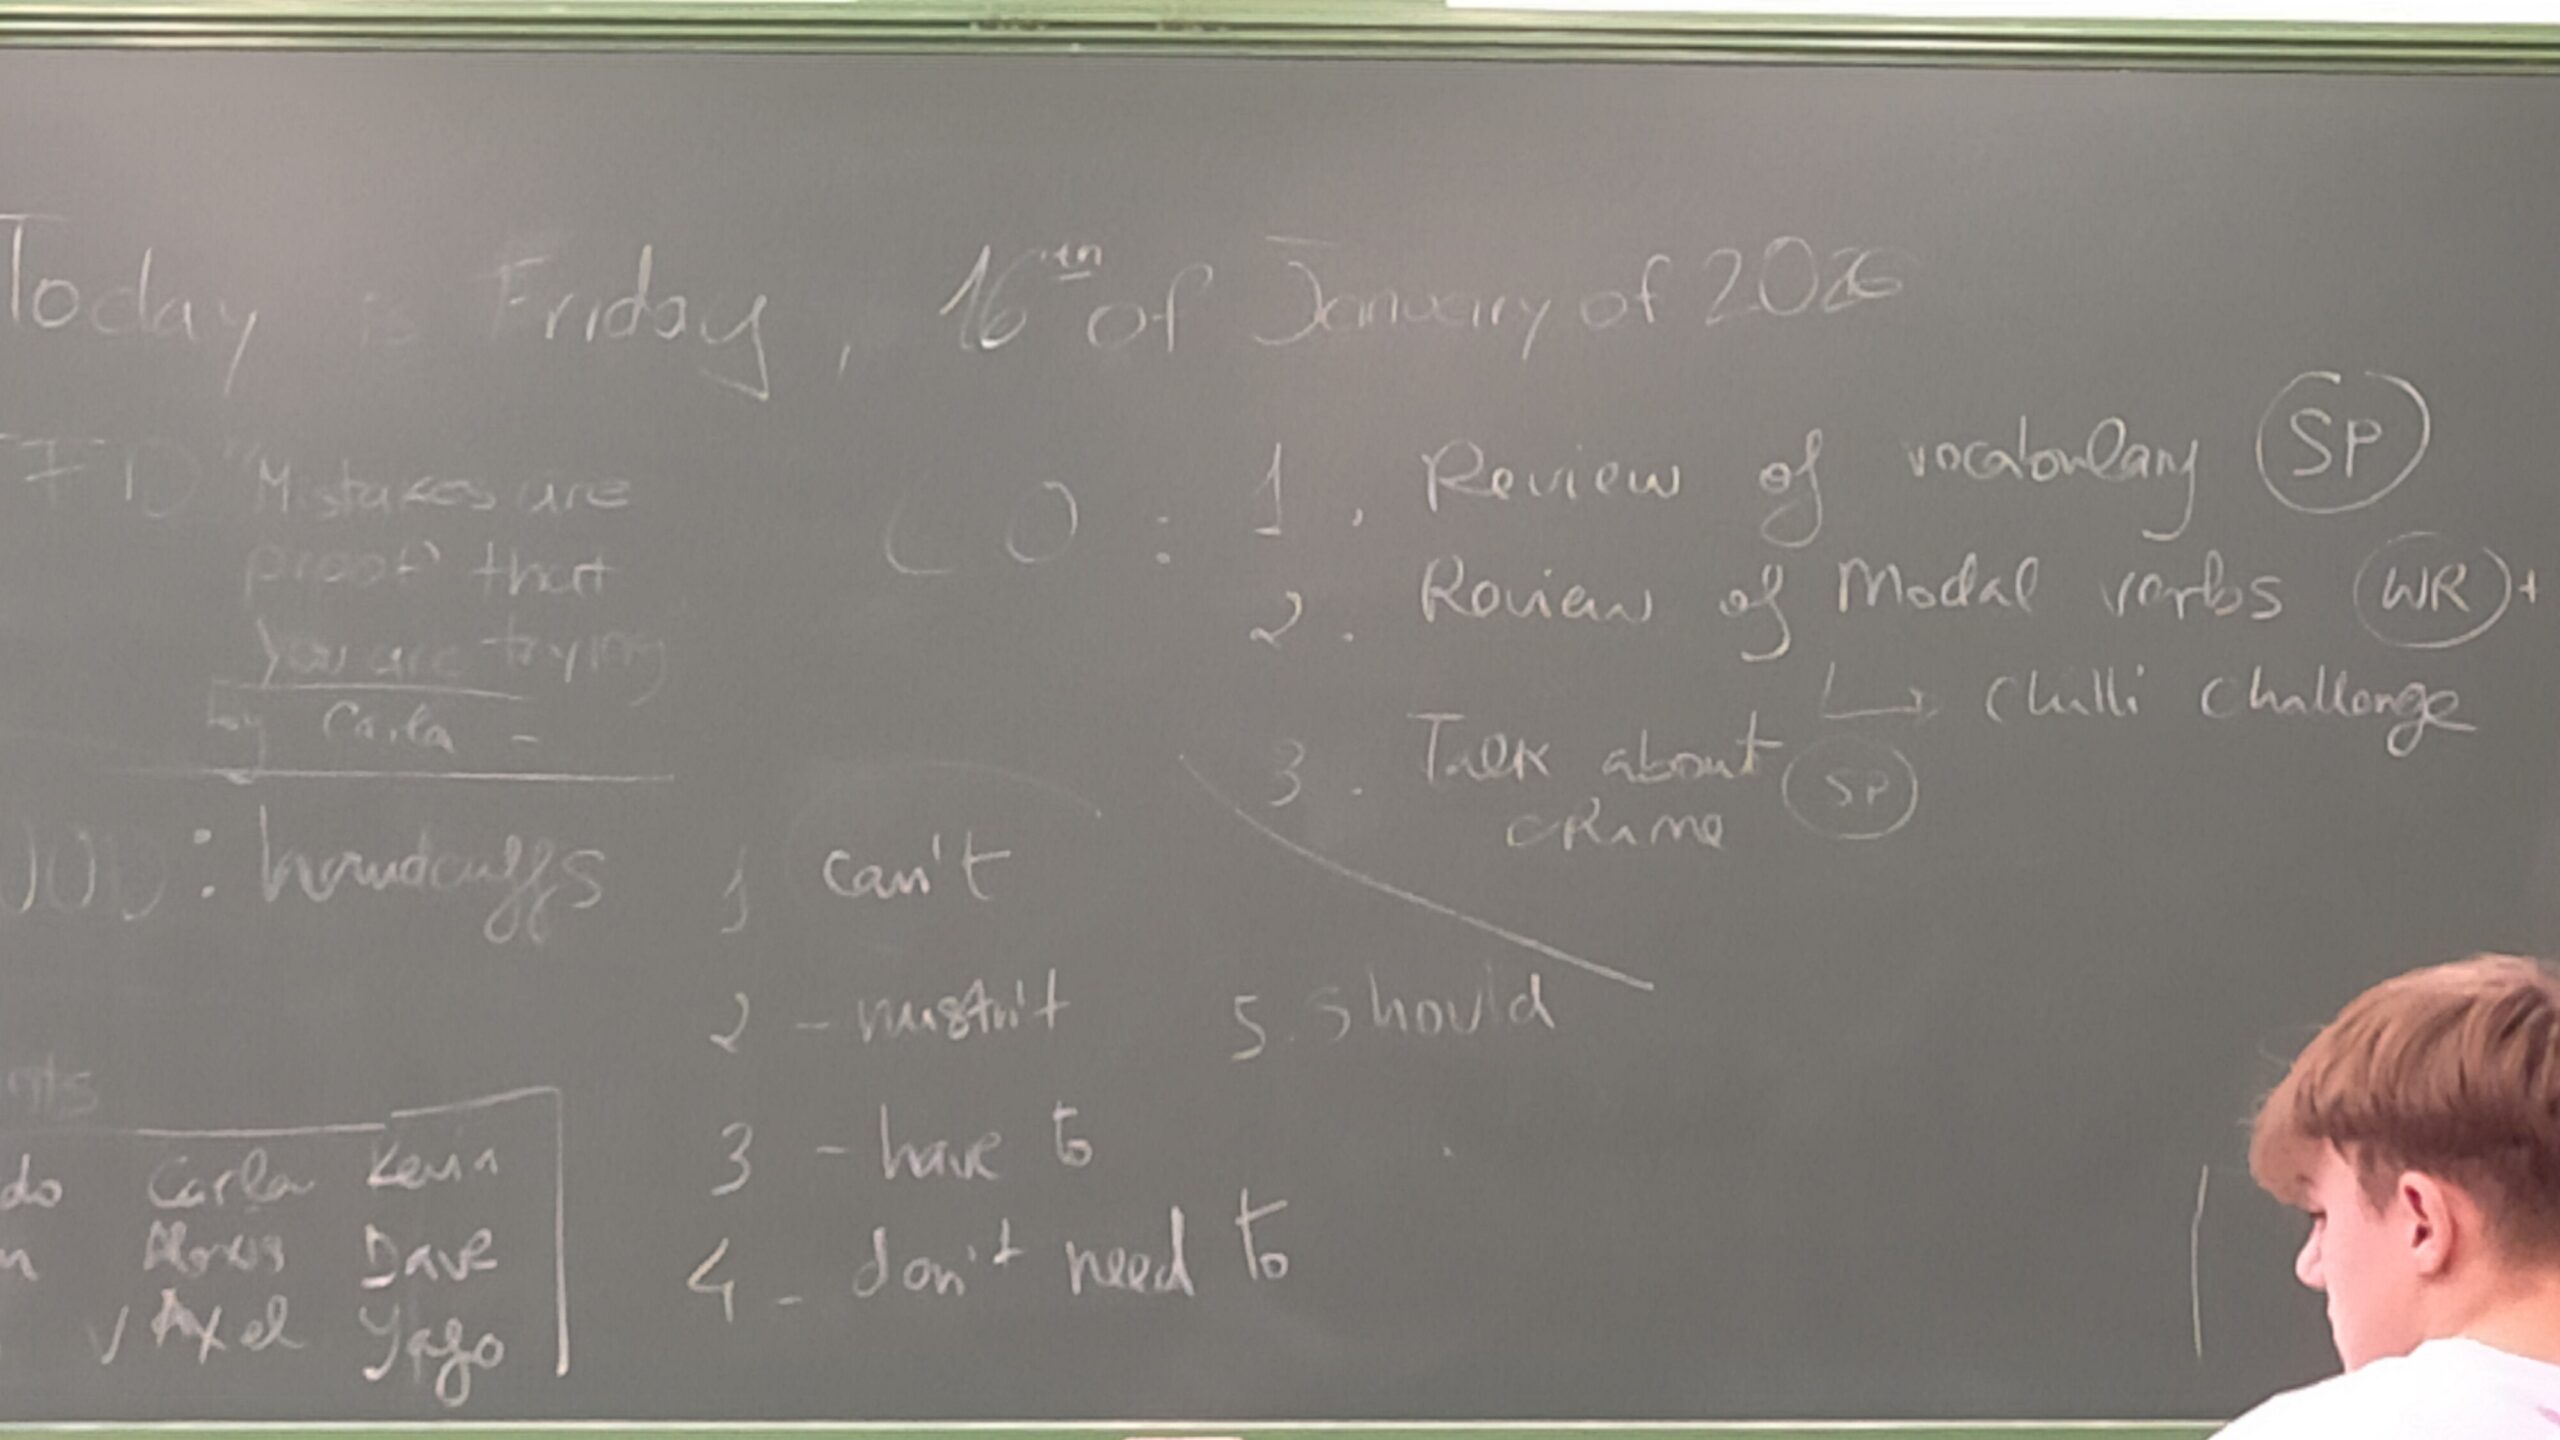 Today is Friday, 16th of January of 2026
TFTD "Mistakes are
proof that
you are trying
by Carla -
LO : 1. Review of vocabulary SP
2. Review of Modal verbs WR +
↳ Chilli Challenge
3. Talk about SP
crime
: handcuffs
1 can't
2 - mustn't
3 - have to
4 - don't need to
5. should
do Carla Kevin
Alexis Dave
✓ Axel Yago